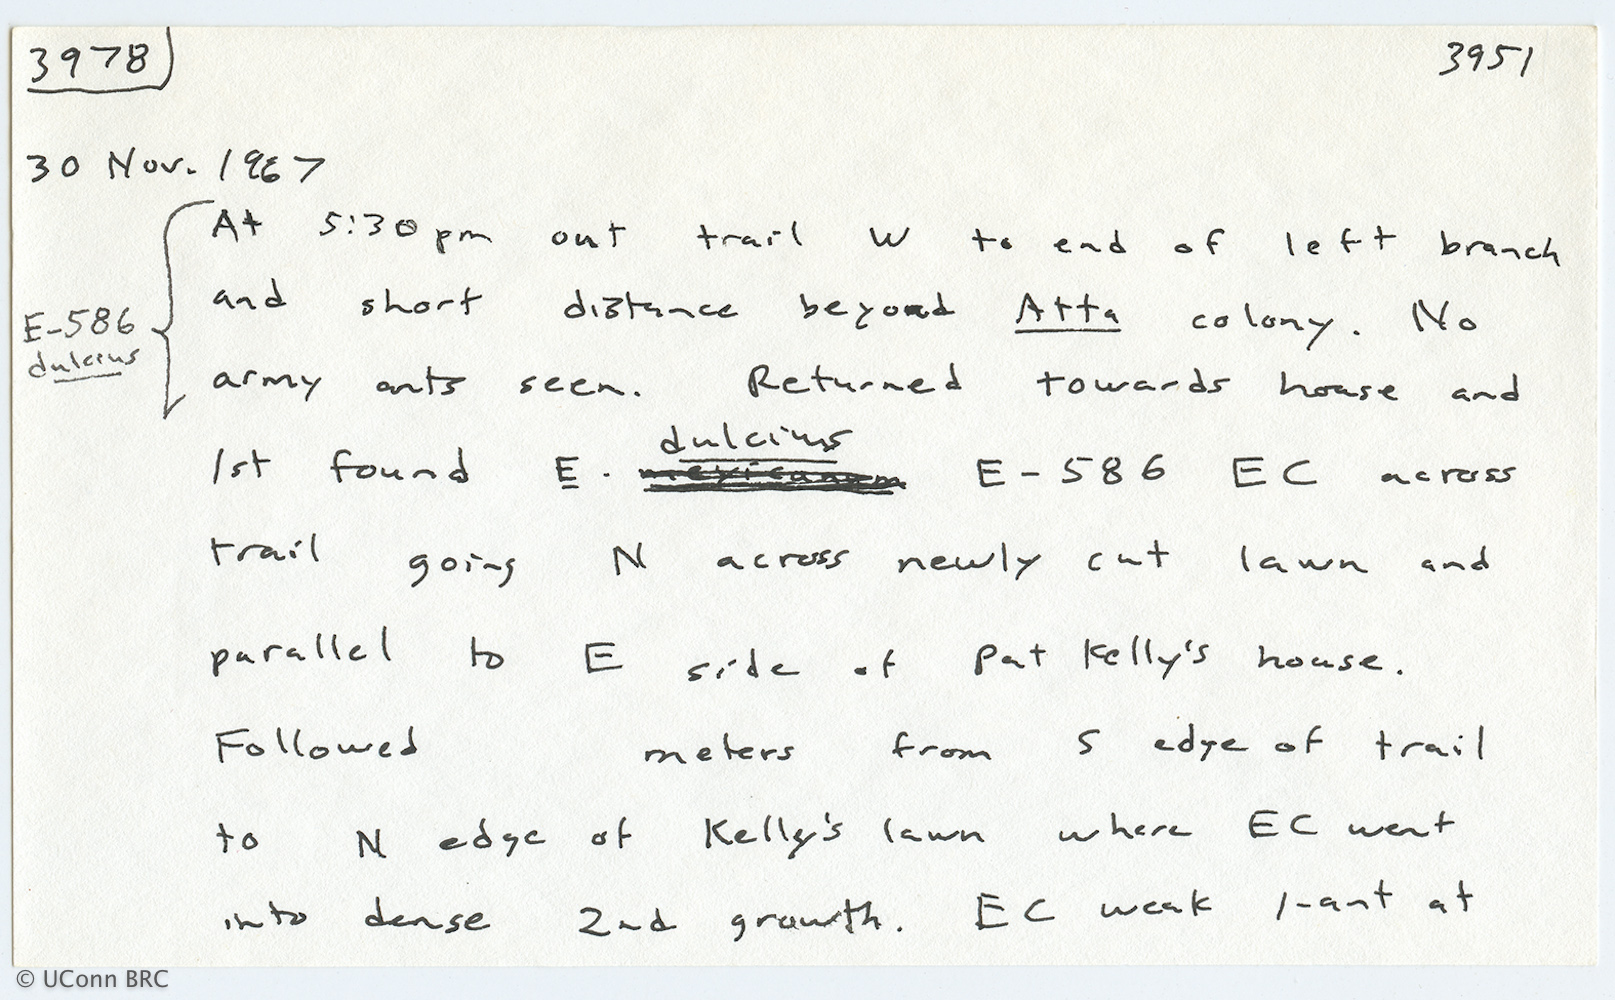 3978
3951
30 Nov. 1967
At 5:30pm out trail W to end of left branch
and short distance beyond Atta colony. No
E-586
dulcius
army ants seen. Returned towards house and
dulcius
1st found E. mexicanum E-586 EC across
trail going N across newly cut lawn and
parallel to E side of Pat Kelly's house.
Followed meters from S edge of trail
to N edge of Kelly's lawn where EC went
into dense 2nd growth. EC weak 1-ant at
© UConn BRC